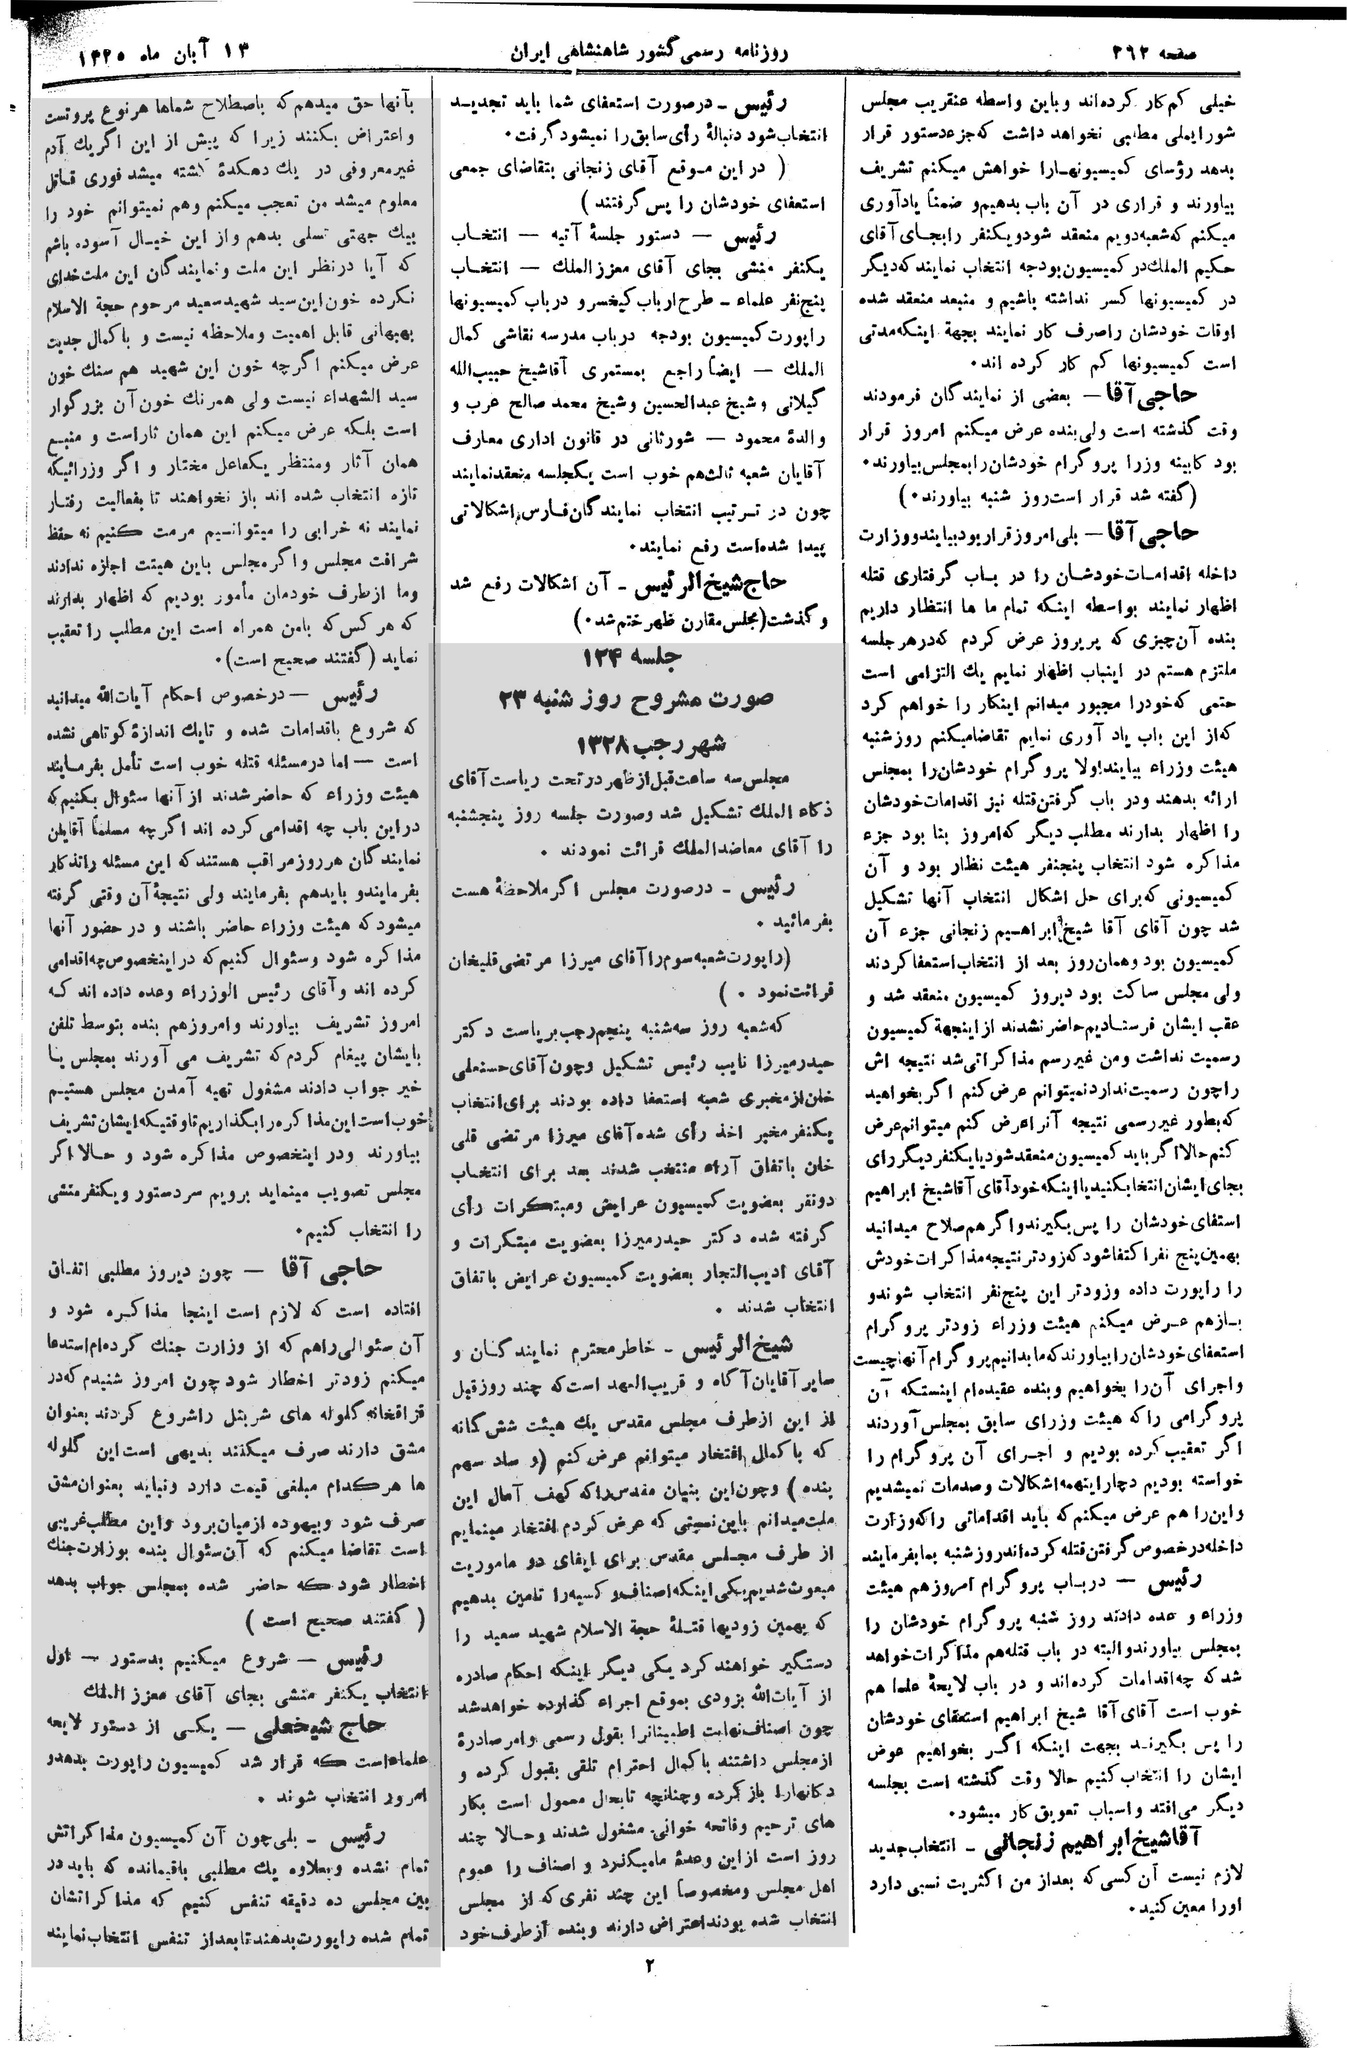 صفحه ۲۶۲
روزنامه رسمی کشور شاهنشاهی ایران
۱۳ آبان ماه ۱۳۲۵
خیلی کم کار کرده‌اند و باین واسطه عنقریب مجلس
شورایملی مطلبی نخواهد داشت که جزء دستور قرار
بدهد رؤسای کمیسیونهارا خواهش میکنم تشریف
بیاورند و قراری در آن باب بدهیم و ضمناً یادآوری
میکنم که شعبه دویم منعقد شود و یکنفر را بجای آقای
حکیم الملک در کمیسیون بودجه انتخاب نمایند که دیگر
در کمیسیونها کسر نداشته باشیم و منبعد منعقد شده
اوقات خودشان را صرف کار نمایند بجهة اینکه مدتی
است کمیسیونها کم کار کرده اند.
حاجی آقا — بعضی از نمایندگان فرمودند
وقت گذشته است ولی بنده عرض میکنم امروز قرار
بود کابینه وزرا پروگرام خودشان را بمجلس بیاورند.
(گفته شد قرار است روز شنبه بیاورند.)
حاجی آقا — بلی امروز قرار بود بیایند و وزارت
داخله اقدامات خودشان را در باب گرفتاری قتله
اظهار نمایند بواسطه اینکه تمام ما ها انتظار داریم
بنده آن چیزی که پریروز عرض کردم که در هر جلسه
ملتزم هستم در اینباب اظهار نمایم یك التزامی است
حتمی که خودرا مجبور میدانم اینکار را خواهم کرد
که از این باب یاد آوری نمایم تقاضا میکنم روز شنبه
هیئت وزراء بیایند اولا پروگرام خودشان را بمجلس
ارائه بدهند و در باب گرفتن قتله نیز اقدامات خودشان
را اظهار بدارند مطلب دیگر که امروز بنا بود جزء
مذاکره شود انتخاب پنجنفر هیئت نظار بود و آن
کمیسیونی که برای حل اشکال انتخاب آنها تشکیل
شد چون آقای آقا شیخ ابراهیم زنجانی جزء آن
کمیسیون بود و همان روز بعد از انتخاب استعفا کردند
ولی مجلس ساکت بود دیروز کمیسیون منعقد شد و
عقب ایشان فرستادیم حاضر نشدند از اینجهة کمیسیون
رسمیت نداشت و من غیر رسم مذاکراتی شد نتیجه اش
را چون رسمیت ندارد نمیتوانم عرض کنم اگر بخواهید
که بطور غیر رسمی نتیجه آنرا عرض کنم میتوانم عرض
کنم حالا اگر باید کمیسیون منعقد شود یا یکنفر دیگر رای
بجای ایشان انتخاب کنید یا اینکه خود آقای آقا شیخ ابراهیم
استفای خودشان را پس بگیرند و اگر هم صلاح میدانید
بهمین پنج نفر اکتفا شود که زودتر نتیجه مذاکرات خودش
را راپورت داده و زودتر این پنج نفر انتخاب شوند و
بازهم عرض میکنم هیئت وزراء زودتر پروگرام
استعفای خودشان را بیاورند که ما بدانیم پروگرام آنها چیست
و اجرای آن را بخواهیم و بنده عقیده‌ام اینستکه آن
پروگرامی را که هیئت وزرای سابق بمجلس آوردند
اگر تعقیب کرده بودیم و اجرای آن پروگرام را
خواسته بودیم دچار اینهمه اشکالات و صدمات نمیشدیم
و این را هم عرض میکنم که باید اقداماتی را که وزارت
داخله در خصوص گرفتن قتله کرده‌اند روز شنبه بما بفرمایند
رئیس — در باب پروگرام امروز هم هیئت
وزراء و عده دادند روز شنبه پروگرام خودشان را
بمجلس بیاورند و البته در باب قتله هم مذاکرات خواهد
شد که چه اقدامات کرده‌اند و در باب لایحهٔ علما هم
خوب است آقای آقا شیخ ابراهیم استعفای خودشان
را پس بگیرند بجهت اینکه اگر بخواهیم عوض
ایشان را انتخاب کنیم حالا وقت گذشته است بجلسه
دیگر می‌افتد و اسباب تعویق کار میشود.
آقا شیخ ابراهیم زنجانی – انتخاب جدید
لازم نیست آن کسی که بعد از من اکثریت نسبی دارد
اورا معین کنید.
رئیس – در صورت استعفای شما باید تجدید
انتخاب شود دنبالهٔ رأی سابق را نمیشود گرفت.
(در این موقع آقای زنجانی بتقاضای جمعی
استعفای خودشان را پس گرفتند)
رئیس — دستور جلسهٔ آتیه — انتخاب
یکنفر منشی بجای آقای معزز الملك — انتخاب
پنج نفر علماء – طرح ارباب کیخسرو در باب کمیسیونها
راپورت کمیسیون بودجه در باب مدرسه نقاشی کمال
الملك — ایضاً راجع بمستمری آقا شیخ حبیب الله
گیلانی و شیخ عبدالحسین و شیخ محمد صالح عرب و
والدهٔ محمود — شور ثانی در قانون اداری معارف
آقایان شعبه ثالث هم خوب است یکجلسه منعقد نمایند
چون در ترتیب انتخاب نمایندگان فارس اشکالاتی
پیدا شده است رفع نمایند.
حاج شیخ الرئیس – آن اشکالات رفع شد
و گذشت (مجلس مقارن ظهر ختم شد.)
جلسه ۱۲۴
صورت مشروح روز شنبه ۲۳
شهر رجب ۱۳۲۸
مجلس سه ساعت قبل از ظهر در تحت ریاست آقای
ذکاء الملك تشکیل شد و صورت جلسه روز پنجشنبه
را آقای معاضد الملك قرائت نمودند .
رئیس – در صورت مجلس اگر ملاحظهٔ هست
بفرمائید .
(راپورت شعبه سوم را آقای میرزا مرتضی قلیخان
قرائت نمود . )
که شعبه روز سه شنبه پنجم رجب بریاست دکتر
حیدر میرزا نایب رئیس تشکیل و چون آقای حسنعلی
خان از مخبری شعبه استعفا داده بودند برای انتخاب
یکنفر مخبر اخذ رأی شده آقای میرزا مرتضی قلی
خان باتفاق آراء منتخب شدند بعد برای انتخاب
دو نفر بعضویت کمیسیون عرایض و مبتکرات رأی
گرفته شده دکتر حیدر میرزا بعضویت مبتکرات و
آقای ادیب التجار بعضویت کمیسیون عرایض باتفاق
انتخاب شدند .
شیخ الرئیس – خاطر محترم نمایندگان و
سایر آقایان آگاه و قریب العهد است که چند روز قبل
از این از طرف مجلس مقدس یك هیئت شش گانه
که با کمال افتخار میتوانم عرض کنم (و ساد سهم
بنده) و چون این بنیان مقدس را که کهف آمال این
ملت میدانم باین نسبتی که عرض کردم افتخار مینمایم
از طرف مجلس مقدس برای ایفای دو ماموریت
مبعوث شدیم یکی اینکه اصناف و کسبه را تامین بدهیم
که بهمین زودیها قتلهٔ حجة الاسلام شهید سعید را
دستگیر خواهند کرد یکی دیگر اینکه احکام صادره
از آیات الله بزودی بموقع اجراء گذارده خواهد شد
چون اصناف نهایت اطمینانرا بقول رسمی و امر صادرهٔ
از مجلس داشتند با کمال احترام تلقی بقبول کرده و
دکانهارا باز کرده و چنانچه تابحال معمول است بکار
های ترحیم و فاتحه خوانی مشغول شدند و حالا چند
روز است از این وعدهٔ ما میگذرد و اصناف را عموم
اهل مجلس و مخصوصاً این چند نفری که از مجلس
انتخاب شده بودند اعتراض دارند و بنده از طرف خود
بآنها حق میدهم که باصطلاح شماها هر نوع پروتست
و اعتراض بکنند زیرا که پیش از این اگر یك آدم
غیر معروفی در یك دهکدهٔ کشته میشد فوری قاتل
معلوم میشد من تعجب میکنم و هم نمیتوانم خود را
بیك جهتی تسلی بدهم و از این خیال آسوده باشم
که آیا در نظر این ملت و نمایندگان این ملت خدای
نکرده خون این سید شهید سعید مرحوم حجة الاسلام
بهبهانی قابل اهمیت و ملاحظه نیست و با کمال جدیت
عرض میکنم اگرچه خون این شهید هم سنك خون
سید الشهداء نیست ولی همرنك خون آن بزرگوار
است بلکه عرض میکنم این همان ثار است و منبع
همان آثار و منتظر یکفاعل مختار و اگر وزرائیکه
تازه انتخاب شده اند باز نخواهند تا بفعالیت رفتار
نمایند نه خرابی را میتوانیم مرمت کنیم نه حفظ
شرافت مجلس و اگر مجلس باین هیئت اجازه ندادند
وما از طرف خودمان مأمور بودیم که اظهار بدارند
که هر کس که بامن همراه است این مطلب را تعقیب
نماید (گفتند صحیح است).
رئیس — در خصوص احکام آیات الله میدانید
که شروع باقدامات شده و تا یك اندازهٔ کوتاهی نشده
است — اما در مسئله قتله خوب است تأمل بفرمایند
هیئت وزراء که حاضر شدند از آنها سئوال بکنیم که
در این باب چه اقدامی کرده اند اگرچه مسلماً آقایان
نمایندگان هر روز مراقب هستند که این مسئله را تذکار
بفرمایند و باید هم بفرمایند ولی نتیجهٔ آن وقتی گرفته
میشود که هیئت وزراء حاضر باشند و در حضور آنها
مذاکره شود و سئوال کنیم که در اینخصوص چه اقدامی
کرده اند و آقای رئیس الوزراء وعده داده اند که
امروز تشریف بیاورند و امروز هم بنده بتوسط تلفن
بایشان پیغام کردم که تشریف می آورند بمجلس یا
خیر جواب دادند مشغول تهیه آمدن مجلس هستیم
خوب است این مذاکره را بگذاریم تا وقتیکه ایشان تشریف
بیاورند و در اینخصوص مذاکره شود و حالا اگر
مجلس تصویب مینماید برویم سر دستور و یکنفر منشی
را انتخاب کنیم.
حاجی آقا — چون دیروز مطلبی اتفاق
افتاده است که لازم است اینجا مذاکره شود و
آن سئوالی را هم که از وزارت جنك کرده‌ام استدعا
میکنم زودتر اخطار شود چون امروز شنیدم که در
قزاقخانه گلوله های شربنل را شروع کردند بعنوان
مشق دارند صرف میکنند بدیهی است این گلوله
ها هر کدام مبلغی قیمت دارد و نباید بعنوان مشق
صرف شود و بیهوده از میان برود و این مطلب غریبی
است تقاضا میکنم که آن سئوال بنده بوزارت جنك
اخطار شود که حاضر شده بمجلس جواب بدهد
(گفتند صحیح است)
رئیس — شروع میکنیم بدستور — اول
انتخاب یکنفر منشی بجای آقای معزز الملك
حاج شیخعلی — یکی از دستور لایحه
علماء است که قرار شد کمیسیون راپورت بدهد و
امروز انتخاب شوند .
رئیس – بلی چون آن کمیسیون مذاکراتش
تمام نشده و بعلاوه یك مطلبی باقیمانده که باید در
بین مجلس ده دقیقه تنفس کنیم که مذاکراتشان
تمام شده راپورت بدهند تا بعد از تنفس انتخاب نمایند
۲